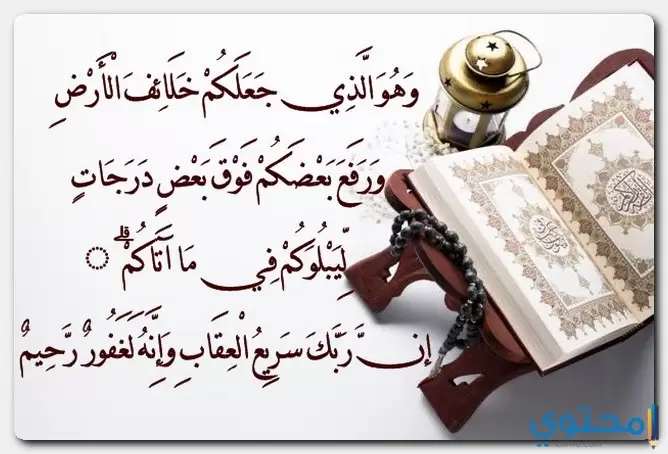 وَهُوَ الَّذِي جَعَلَكُمْ خَلَائِفَ الْأَرْضِ
وَرَفَعَ بَعْضَكُمْ فَوْقَ بَعْضٍ دَرَجَاتٍ
لِّيَبْلُوَكُمْ فِي مَا آتَاكُمْ ۗ
إِنَّ رَبَّكَ سَرِيعُ الْعِقَابِ وَإِنَّهُ لَغَفُورٌ رَّحِيمٌ
محتوي